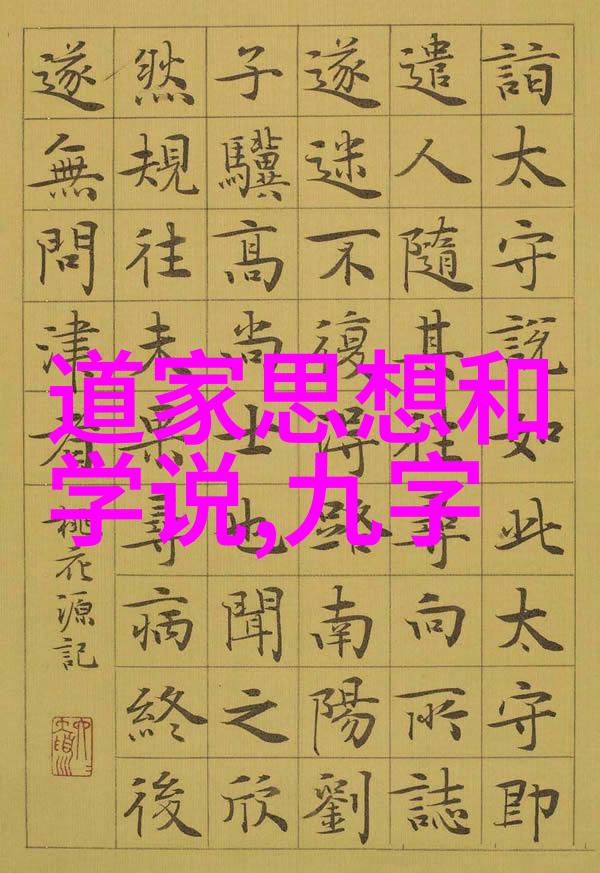 詣太守説如此太守即
遣人隨其往尋向所誌
遂迷不復得路南陽劉
子驥高尚士也聞之欣
然規往未果尋病終後
遂無問津者
桃花源記
道家思想和
学说,九字